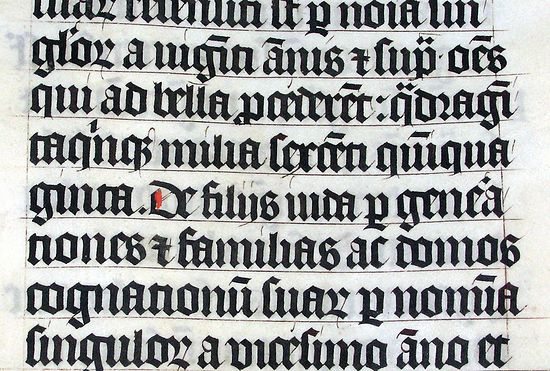 suaꝝ recensiti sūt ꝑ noīa sin
guloꝝ a uigīti ānis ⁊ sup̄ · oēs
qui ad bella ꝓcederēt : q̄dragī
taqͥnqꝫ milia sexcēti quīqua
ginta. De filijs iuda ꝑ genera
tiones ⁊ familias ac domos
cognationū suaꝝ ꝑ nomīa
singuloꝝ a uicesimo āno et